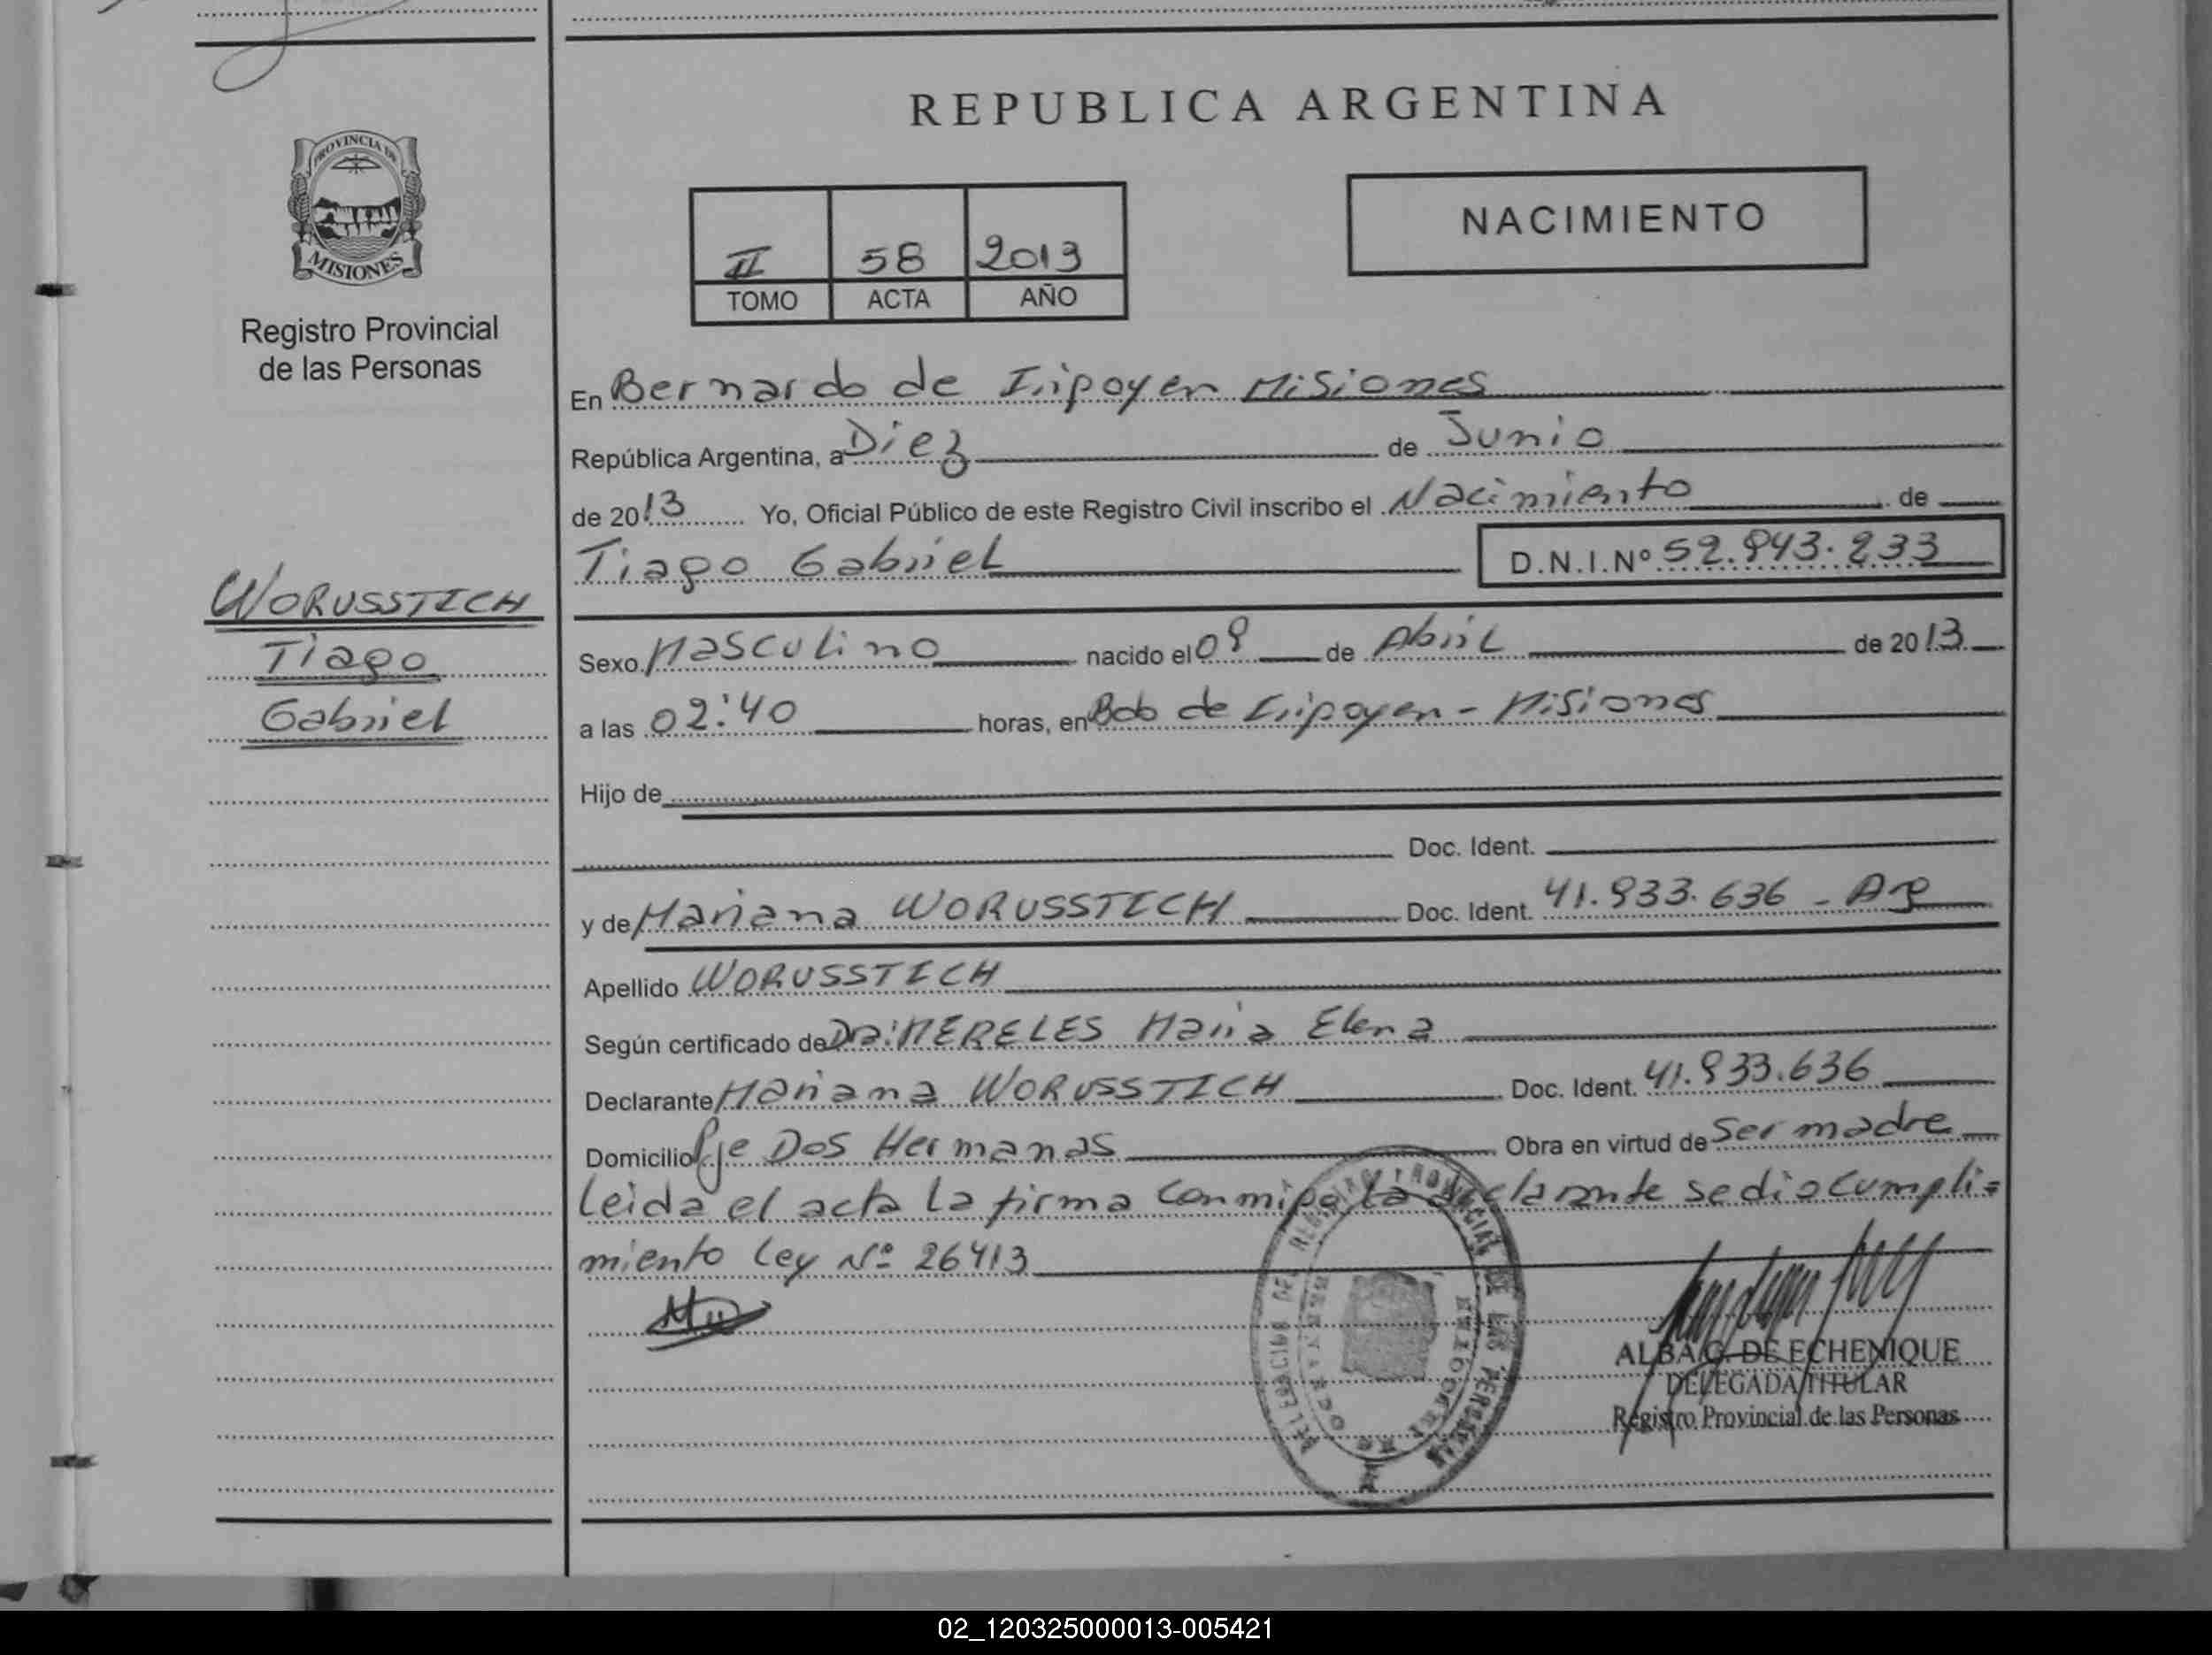 REPUBLICA ARGENTINA
PROVINCIA DE
MISIONES
Registro Provincial
de las Personas
NACIMIENTO
II 58 2013
TOMO ACTA AÑO
En Bernardo de Irigoyen Misiones
República Argentina, a Diez de Junio
de 2013 Yo, Oficial Público de este Registro Civil inscribo el Nacimiento de
Tiago Gabriel D.N.I.Nº
WORUSSTICH
Tiago
Gabriel
Sexo Masculino nacido el de Abril de 2013
a las 02:40 horas, en Bdo de Irigoyen - Misiones
Hijo de
Doc. Ident.
y de Mariana WORUSSTICH Doc. Ident. 41. 933. 636 - Arg
Apellido WORUSSTICH
Según certificado de Dra: MERELES Maria Elena
Declarante Mariana WORUSSTICH Doc. Ident. 41.933.636
Domicilio Pje Dos Hermanas Obra en virtud de ser madre
Leida el acta la firma conmigo la declarante se dio cumpli=
miento Ley Nº 26413
DEL REGISTRO PROVINCIAL DE LAS PERSONAS
ALBA G. DE ECHENIQUE
DELEGADA TITULAR
Registro Provincial de las Personas
02_120325000013-005421